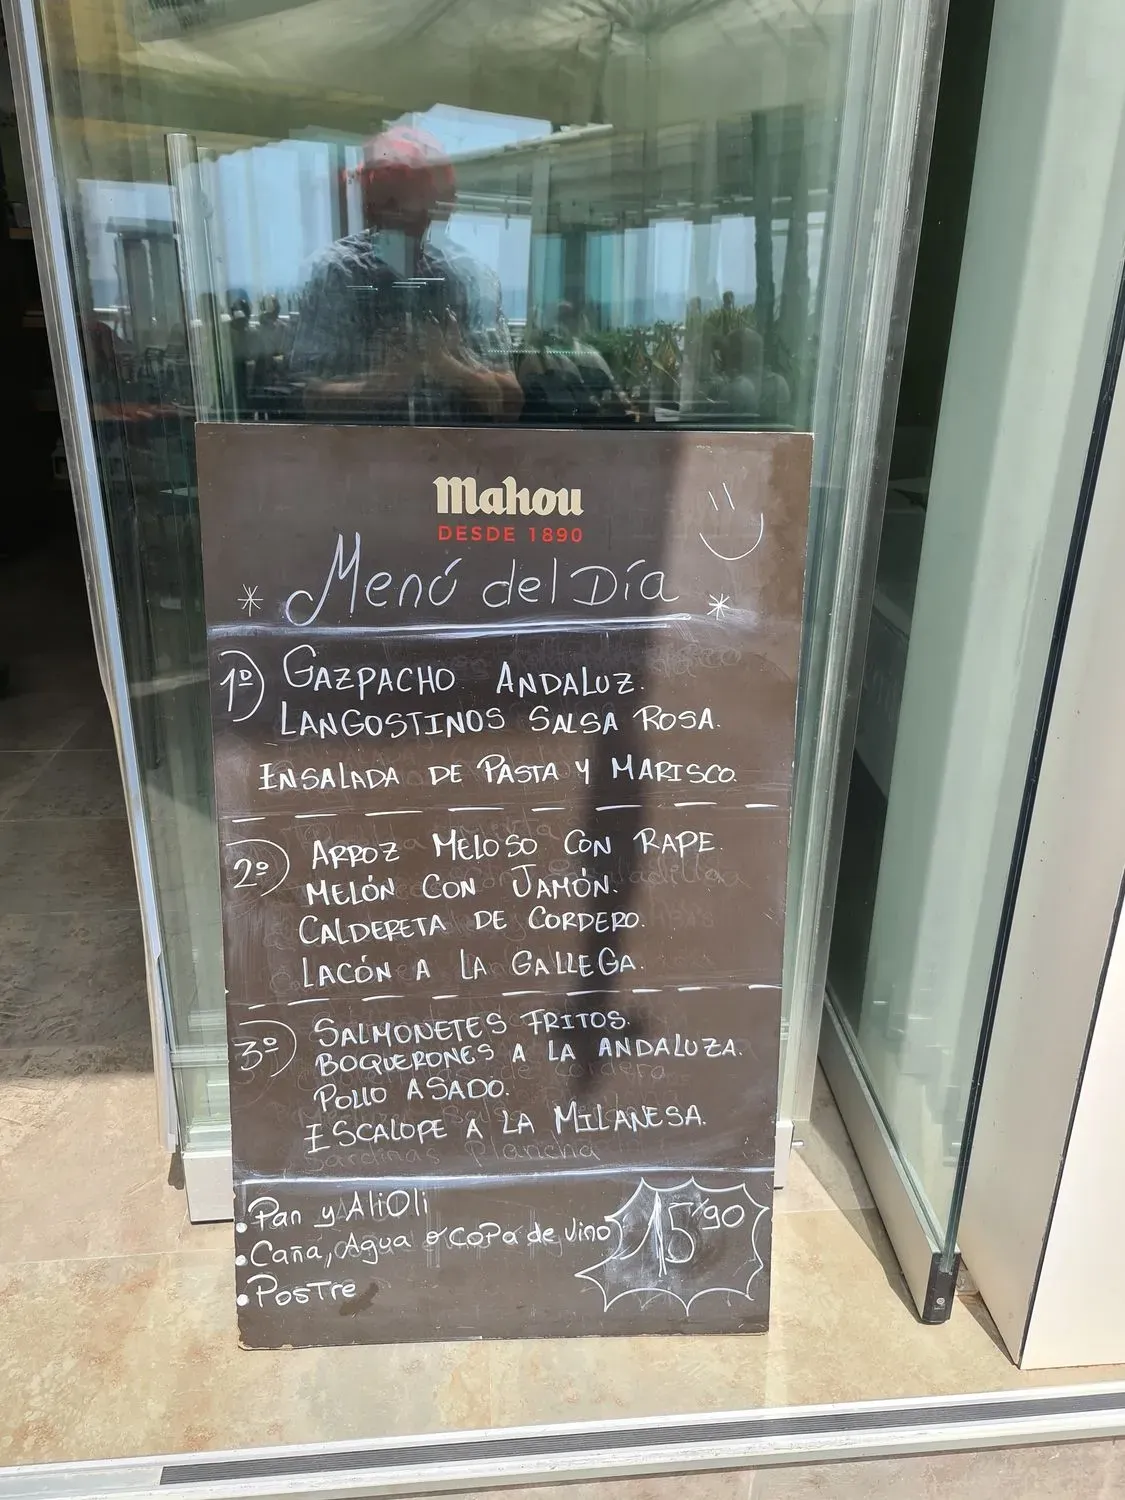 Mahou
DESDE 1890
* Menú del Día *
1º) GAZPACHO ANDALUZ.
LANGOSTINOS SALSA ROSA.
ENSALADA DE PASTA Y MARISCO.
2º) ARROZ MELOSO CON RAPE.
MELÓN CON JAMÓN.
CALDERETA DE CORDERO.
LACÓN A LA GALLEGA.
3º) SALMONETES FRITOS.
BOQUERONES A LA ANDALUZA.
POLLO ASADO.
ESCALOPE A LA MILANESA.
Sardinas Plancha
• Pan y AliOli
• Caña, Agua o copa de vino
• Postre
15'90